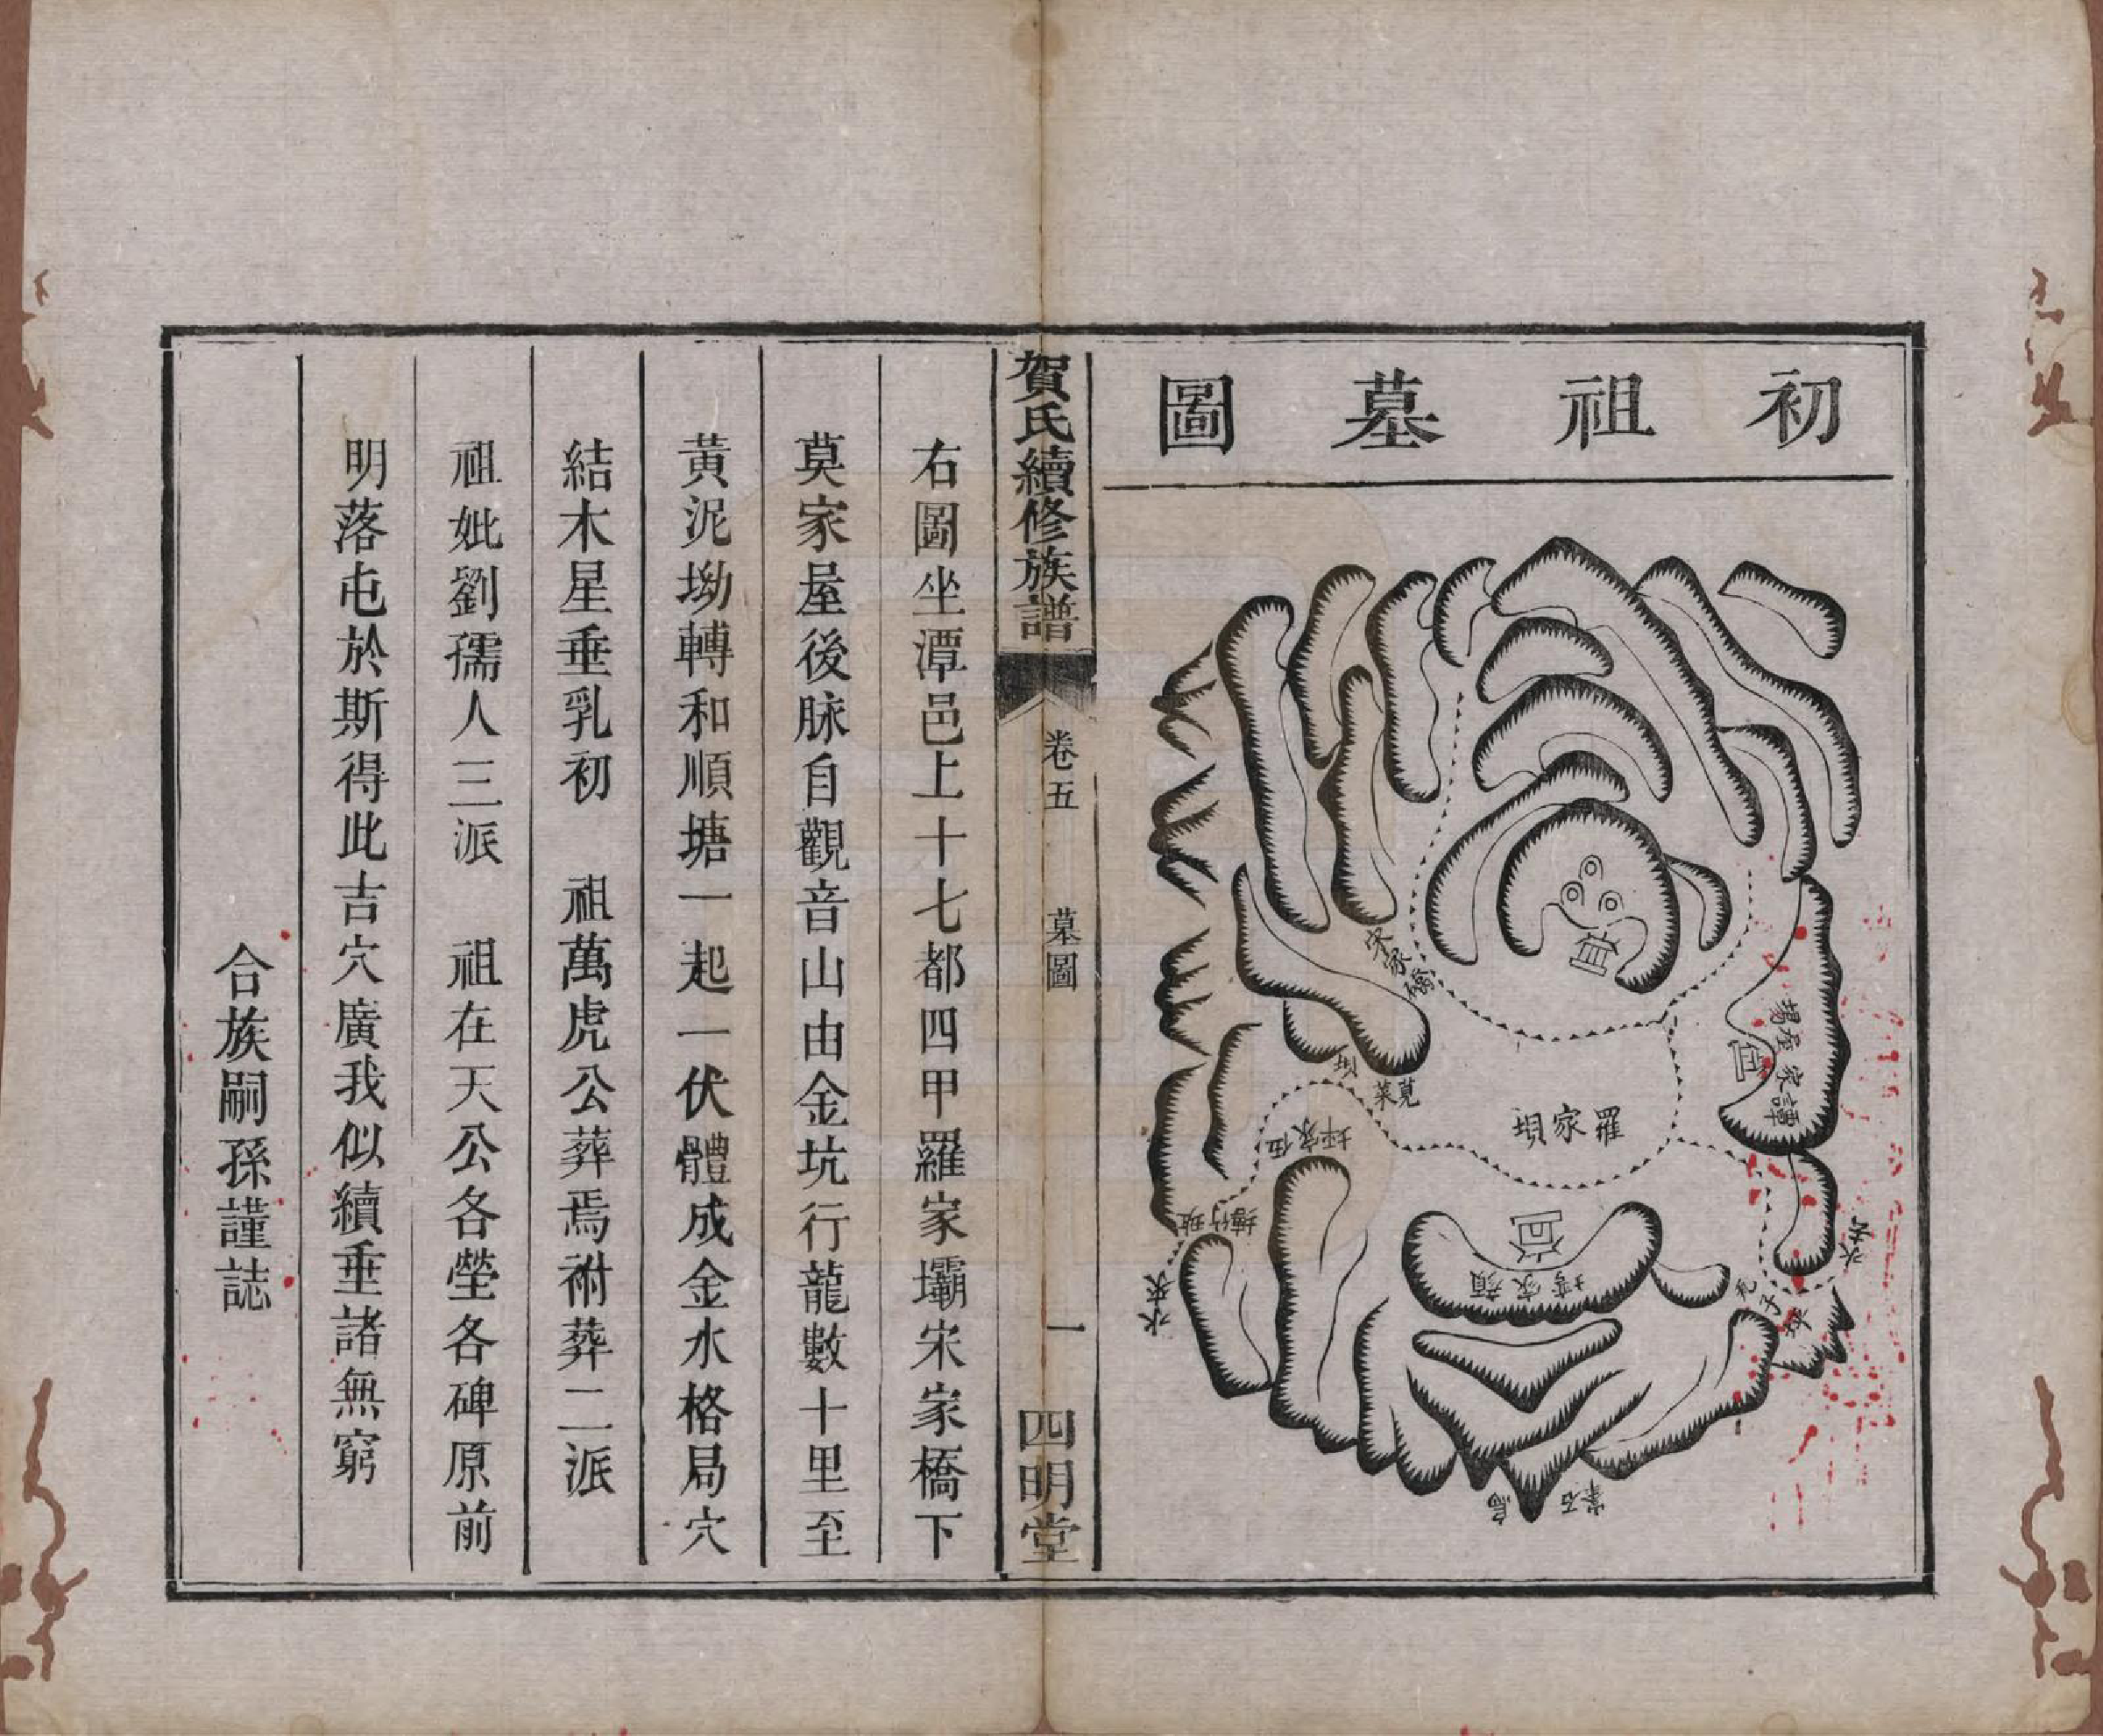 初祖墓圖
宋家橋
譚家屋場
羅家垻
莧菜垻
伍家坪
顏家塆
水去
水來
獅子
賀氏續修族譜
卷五
墓圖
一
四明堂
右圖坐潭邑上十七都四甲羅家壩宋家橋下
莫家屋後脉自觀音山由金坑行龍數十里至
黃泥坳轉和順塘一起一伏體成金水格局穴
結木星垂乳初　祖萬虎公葬焉祔葬二派
祖妣劉孺人三派　祖在天公各塋各碑原前
明落屯於斯得此吉穴廣我似續垂諸無窮
合族嗣孫謹誌